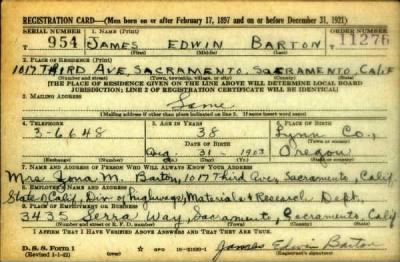 REGISTRATION CARD—(Men born on or after February 17, 1897 and on or before December 31, 1921)
SERIAL NUMBER 1. NAME (Print) ORDER NUMBER
T 954 JAMES EDWIN BARTON 11276
(First) (Middle) (Last)
2. PLACE OF RESIDENCE (Print)
1017 THIRD AVE SACRAMENTO. SACRAMENTO CALIF
(Number and street) (Town, township, village, or city) (County) (State)
[THE PLACE OF RESIDENCE GIVEN ON THE LINE ABOVE WILL DETERMINE LOCAL BOARD
JURISDICTION; LINE 2 OF REGISTRATION CERTIFICATE WILL BE IDENTICAL]
3. MAILING ADDRESS
Same
[Mailing address if other than place indicated on line 2. If same insert word same]
4. TELEPHONE 5. AGE IN YEARS 6. PLACE OF BIRTH
3-6648 38 Linn Co.,
DATE OF BIRTH
Aug. 31 1903 Oregon
(Exchange) (Number) (Mo.) (Day) (Yr.) (State or country)
7. NAME AND ADDRESS OF PERSON WHO WILL ALWAYS KNOW YOUR ADDRESS
Mrs. M. Barton, 1017 Third Ave, Sacramento, Calif
8. EMPLOYER'S NAME AND ADDRESS
State of Calif, Div. of highways, Materials & Research Dept.
9. PLACE OF EMPLOYMENT OR BUSINESS
3435 Serra Way, Sacramento, Sacramento, Calif
(Number and street or R. F. D. number) (Town) (County) (State)
I AFFIRM THAT I HAVE VERIFIED ABOVE ANSWERS AND THAT THEY ARE TRUE.
D. S. S. Form 1 GPO James Edwin Barton
(Revised 1-1-42) (over) (Registrant's signature)